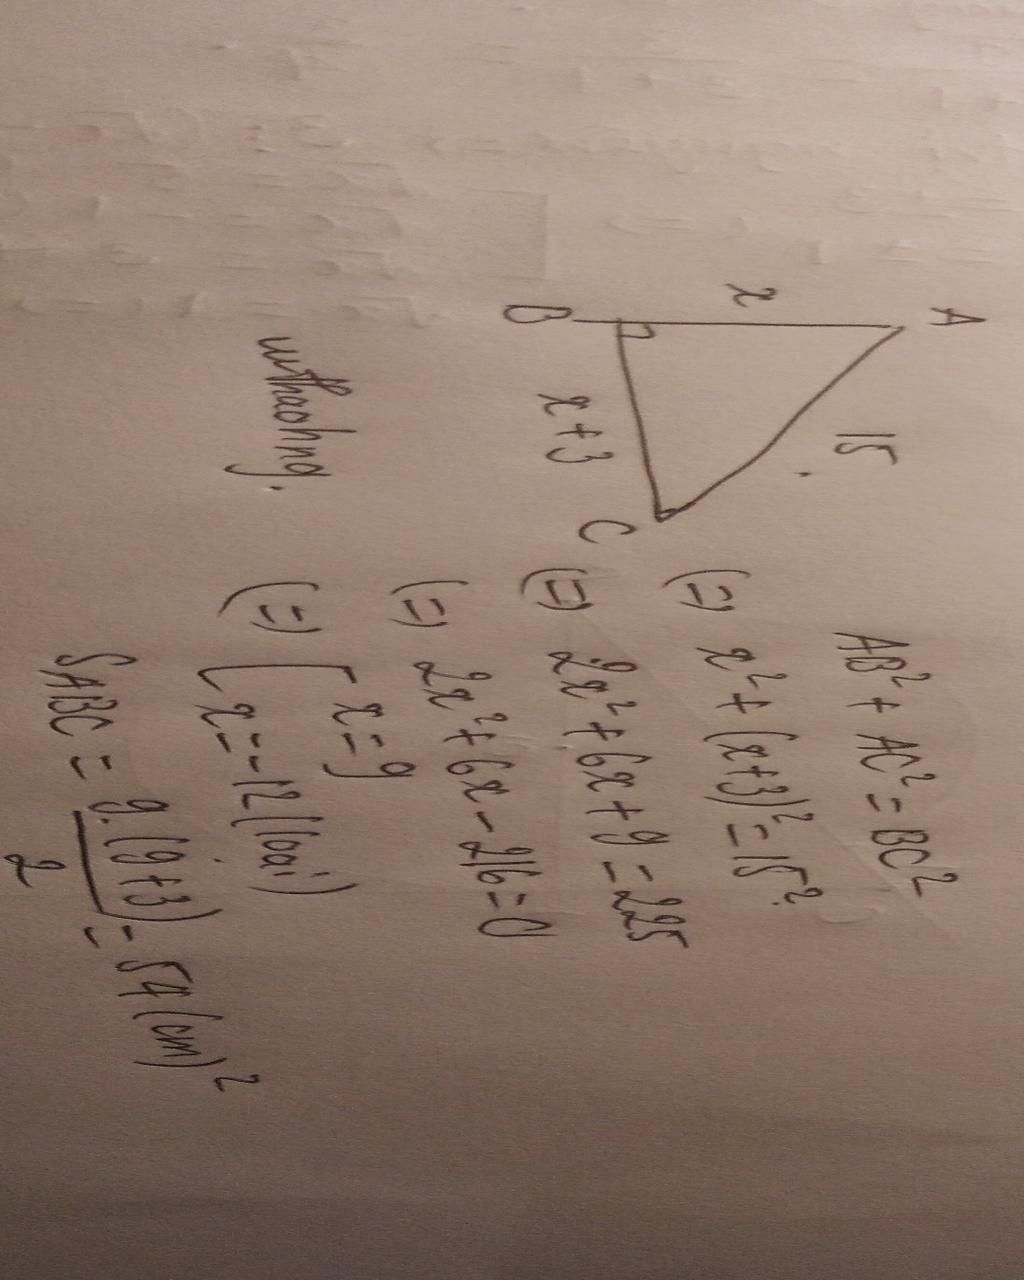 A
x
15
B
x+3
C
AB² + AC² = BC²
(=) x² + (x+3)² = 15²
(=) 2x² + 6x + 9 = 225
(=) 2x² + 6x - 216 = 0
(=) [ x = 9
x = -12 (loại)
S ABC = 9.(9+3) / 2 = 54 (cm)²